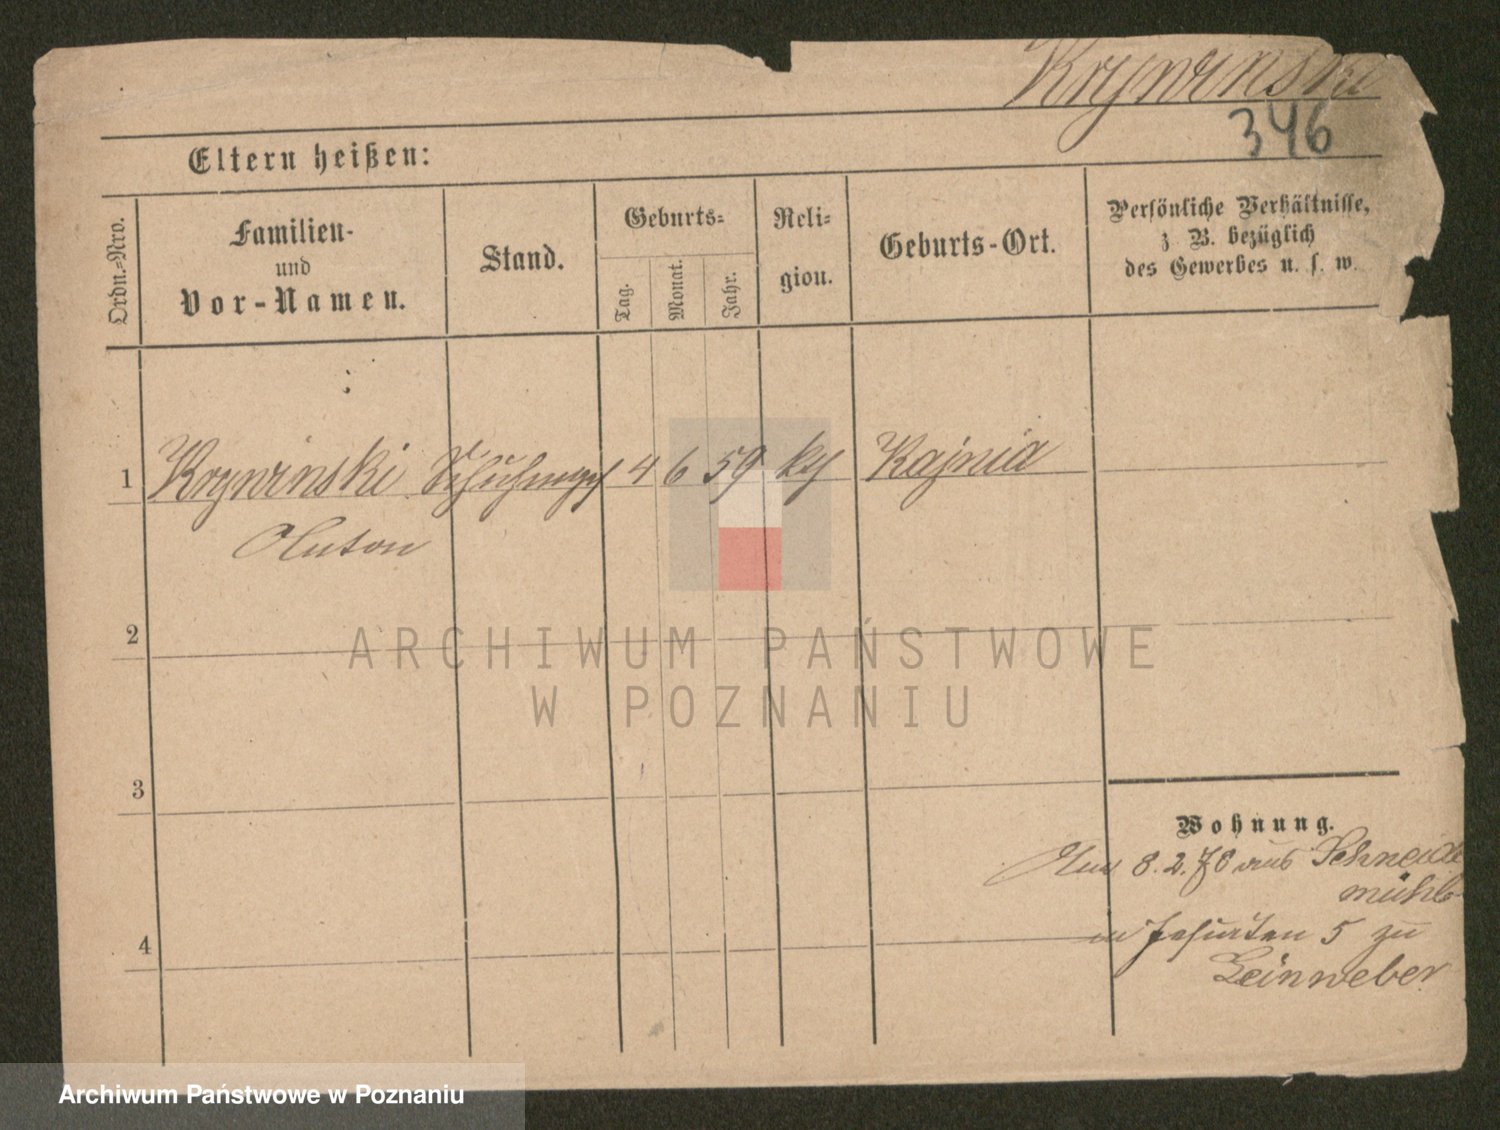 Krzywinski
346
Eltern heißen:
Ordn.-Nro.
Familien-
und
Vor-Namen.
Stand.
Geburts-
Tag.
Monat.
Jahr.
Reli-
gion.
Geburts-Ort.
Persönliche Verhältnisse,
z. B. bezüglich
des Gewerbes u. s. w.
1 Krzywinski 4 6 59 Kajnia
Anton
2
ARCHIWUM PAŃSTWOWE
W POZNANIU
3
Wohnung.
8.2.78 aus Schneide
mühl
Jesuiten 5 zu
Leinweber
4
Archiwum Państwowe w Poznaniu